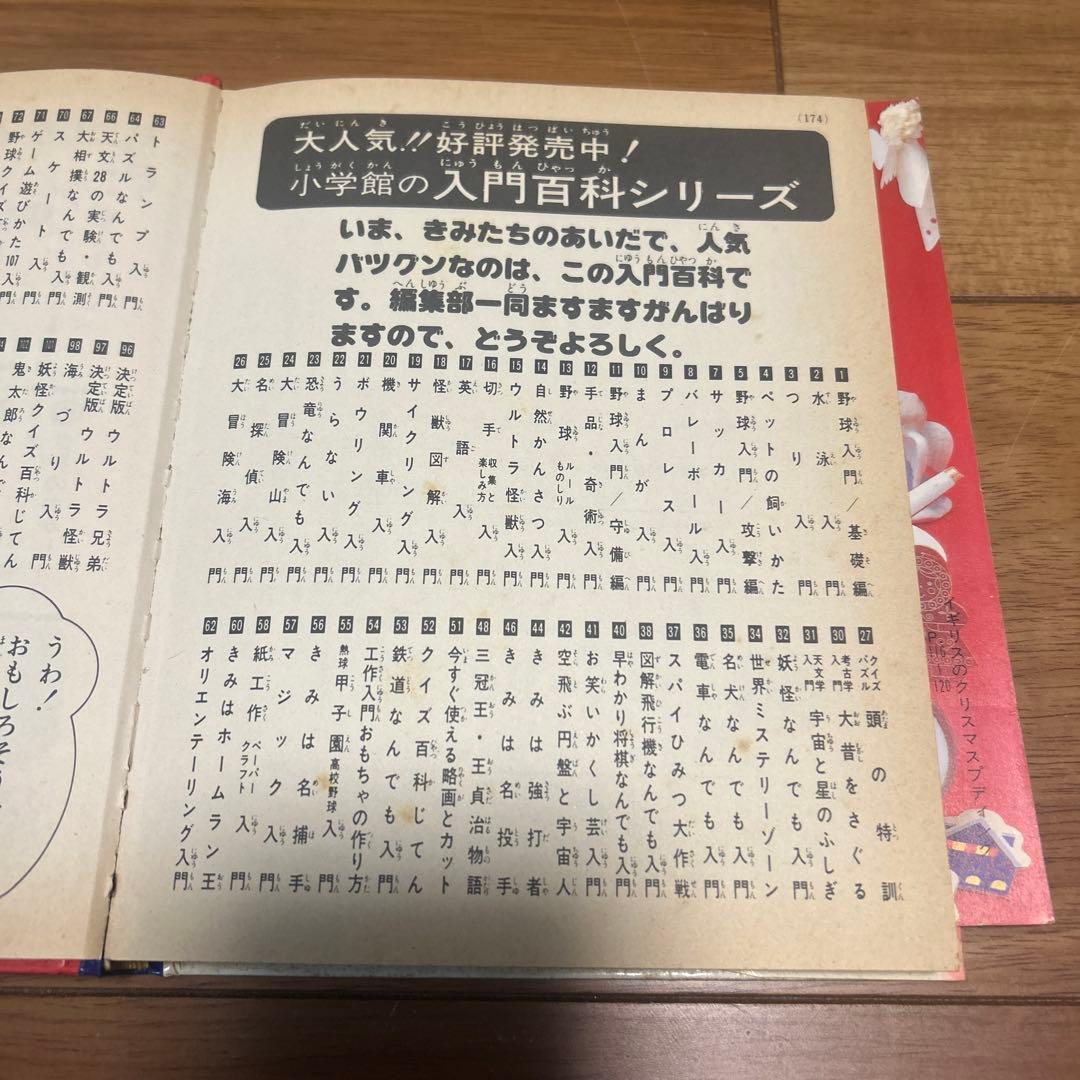 (174)
大人気!!好評発売中!
小学館の入門百科シリーズ
いま、きみたちのあいだで、人気
バツグンなのは、この入門百科で
す。編集部一同ますますがんばり
ますので、どうぞよろしく。
1 野球入門/基礎編
2 水泳入門
3 つり入門
4 ペットの飼いかた
5 野球入門/攻撃編
7 サッカー入門
8 バレーボール入門
9 プロレス入門
10 まんが入門
11 野球入門/守備編
12 手品・奇術入門
13 野球ルールものしり入門
14 自然かんさつ入門
15 ウルトラ怪獣入門
16 切手収集と楽しみ方入門
17 英語入門
18 怪獣図解入門
19 サイクリング入門
20 機関車入門
21 ボウリング入門
22 うらない入門
23 恐竜なんでも入門
24 大冒険山入門
25 名探偵入門
26 大冒険海入門
27 クイズパズル頭の特訓
30 考古学入門大昔をさぐる
31 天文学入門宇宙と星のふしぎ
32 妖怪なんでも入門
34 世界ミステリーゾーン
35 名犬なんでも入門
36 電車なんでも入門
37 スパイひみつ大作戦
38 図解飛行機なんでも入門
40 早わかり将棋なんでも入門
41 お笑いかくし芸入門
42 空飛ぶ円盤と宇宙人
44 きみは強打者
46 きみは名投手
48 三冠王・王貞治物語
51 今すぐ使える略画とカット
52 クイズ百科じてん
53 鉄道なんでも入門
54 工作入門おもちゃの作り方
55 熱球甲子園高校野球入門
56 きみは名捕手
57 マジック入門
58 紙工作ペーパークラフト入門
60 きみはホームラン王
62 オリエンテーリング入門
63 トランプ入門
64 パズルなんでも入門
66 天文28の実験・観測
67 大相撲なんでも入門
70 スケート入門
71 ゲーム遊び
72 野球
107 入門
96 決定版ウルトラ兄弟
97 決定版ウルトラ怪獣
98 海づり入門
妖怪クイズ百科じてん
鬼太郎なん
うわ!
おもしろそ
イギリスのクリスマスプディング
P.116~120